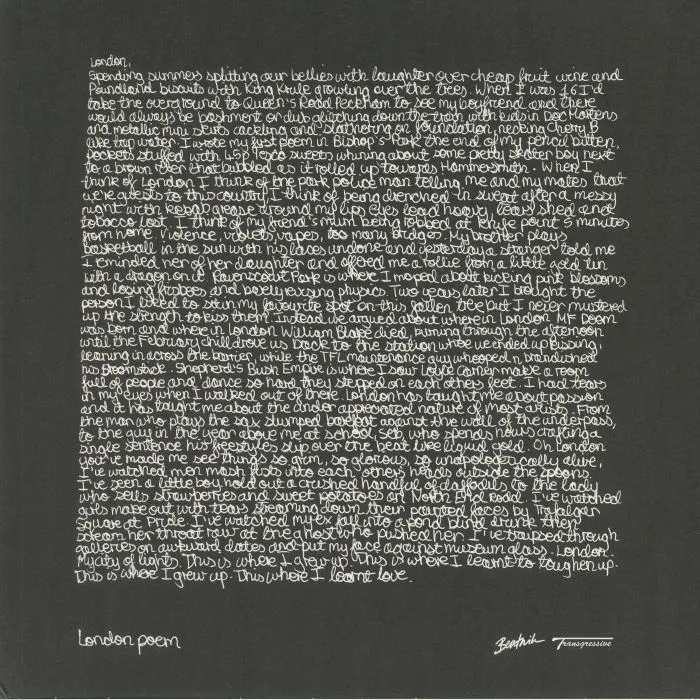 London,
Spending summers splitting our bellies with laughter over cheap fruit wine and
Poundland biscuits with King Krule growling over the trees. When I was 16 I'd
take the overground to Queen's Road Peckham to see my boyfriend and there
would always be bashment or dub glitching down the train with kids in Doc Martens
and metallic mini skirts cackling and slathering on foundation, necking Cherry B
like tap water. I wrote my first poem in Bishop's Park the end of my pencil bitten,
pockets stuffed with 45p Tesco sweets whining about some pretty skater boy next
to a brown river that bubbled as it rolled up towards Hammersmith. When I
think of London I think of the park police man telling me and my mates that
we're guests to this country, I think of being drenched in sweat after a messy
night with kebab grease around my lips eyes lead heavy, tears shed and
tobacco lost. I think of my friend's mum being robbed at knife point 5 minutes
from home. Violence, violets, vapes, too many bridges. My brother plays
basketball in the sun with his laces undone and yesterday a stranger told me
I reminded her of her daughter and offered me a toffee from a little gold tin
with a dragon on it. Ravenscourt Park is where I moped about kicking pink blossoms
and losing frisbees and barely revising physics. Two years later I brought the
person I liked to sit in my favourite spot on this fallen tree but I never mustered
up the strength to kiss them. Instead we argued about where in London MF Doom
was born and where in London William Blake died, burning through the afternoon
until the February chill drove us back to the station where we ended up kissing,
leaning in across the barrier, while the TFL maintenance guy whooped n brandished
his broomstick. Shepherd's Bush Empire is where I saw Loyle Carner make a room
full of people and dance so hard they stepped on each others feet. I had tears
in my eyes when I walked out of there. London has taught me about passion
and it has taught me about the under appreciated nature of most artists. From
the man who plays the sax slumped barefoot against the wall of the underpass,
to the guy in the year above me at school, Seb, who spends hours crafting a
single sentence his freestyles slip over the beat like liquid gold. Oh London
you've made me see things so grim, so glorious, so unapologetically alive,
I've watched men mash fists into each others heads outside the spoons,
I've seen a little boy hold out a crushed handful of daffodils to the lady
who sells strawberries and sweet potatoes on North End Road. I've watched
girls make out with tears streaming down their painted faces by Trafalgar
Square at Pride. I've watched my ex fall into a pond blind drunk then
scream her throat raw at the ghost who pushed her. I've traipsed through
galleries on awkward dates and put my face against museum glass. London.
My city of lights. This is where I grew up. This is where I learnt to toughen up.
This is where I grew up. This where I learnt love.
London poem
Beatnik Transgressive